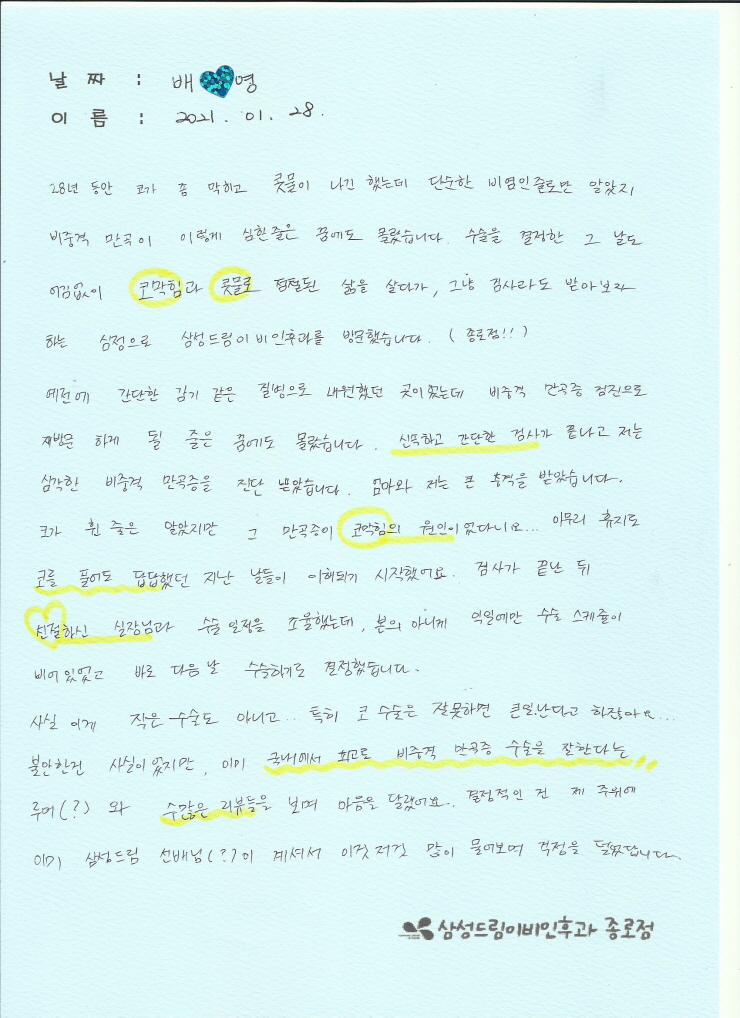 날 짜 : 배 영
이 름 : 2021. 01. 28.
28년 동안 코가 좀 막히고 콧물이 나긴 했는데 단순한 비염인줄로만 알았지
비중격 만곡이 이렇게 심한줄은 꿈에도 몰랐습니다. 수술을 결정한 그 날도
어김없이 코막힘과 콧물로 점철된 삶을 살다가, 그냥 검사라도 받아보자
하는 심정으로 삼성드림이비인후과를 방문했습니다. (종로점!!)
예전에 간단한 감기 같은 질병으로 내원했던 곳이었는데 비중격 만곡증 검진으로
재방문 하게 될 줄은 꿈에도 몰랐습니다. 신속하고 간단한 검사가 끝나고 저는
심각한 비중격 만곡증을 진단 받았습니다. 엄마와 저는 큰 충격을 받았습니다.
코가 휜 줄은 알았지만 그 만곡증이 코막힘의 원인이었다니요... 아무리 휴지로
코를 풀어도 답답했던 지난 날들이 이해되기 시작했어요. 검사가 끝난 뒤
친절하신 실장님과 수술 일정을 조율했는데, 본의 아니게 익일에만 수술 스케쥴이
비어 있었고 바로 다음 날 수술하기로 결정했습니다.
사실 이게 작은 수술도 아니고.. 특히 코 수술은 잘못하면 큰일난다고 하잖아요...
불안한건 사실이었지만, 이미 국내에서 최고로 비중격 만곡증 수술을 잘한다는
루머(?)와 수많은 리뷰들을 보며 마음을 달랬어요. 결정적인 건 제 주위에
이미 삼성드림 선배님(?)이 계셔서 이것저것 많이 물어보며 걱정을 덜었답니다.
삼성드림이비인후과 종로점